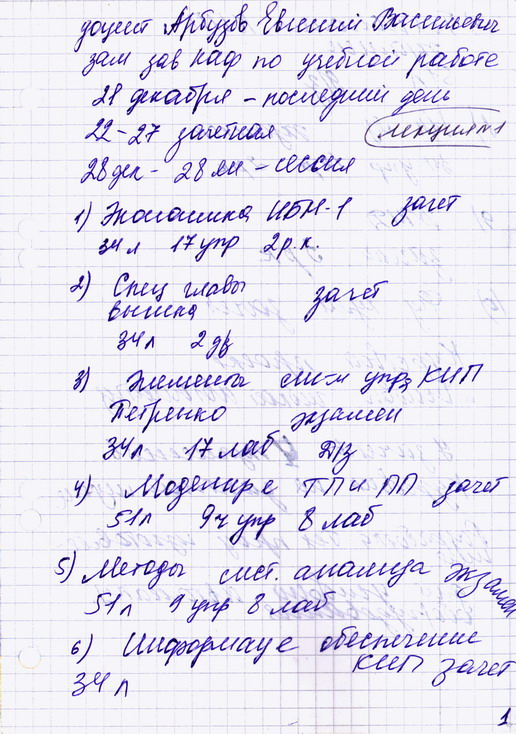 доцент Арбузов Евгений Васильевич
зам зав каф по учебной работе
21 декабря – последний день
22-27 зачетная
лекция №1
28 дек – 28 ян – сессия
1) Экономика ИБМ-1 зачет
34 л 17 упр 2 р.к.
2) Спец главы зачет
вышка
34 л 2 дз
3) Элементы сис-м упр КИП
Петренко экзамен
34 л 17 лаб ДЗ
4) Моделир-е ТП и ПП зачет
51 л 9 ч упр 8 лаб
5) Методы сист. анализа экзамен
51 л 9 упр 8 лаб
6) Информац-е обеспечение
КИП зачет
34 л
1